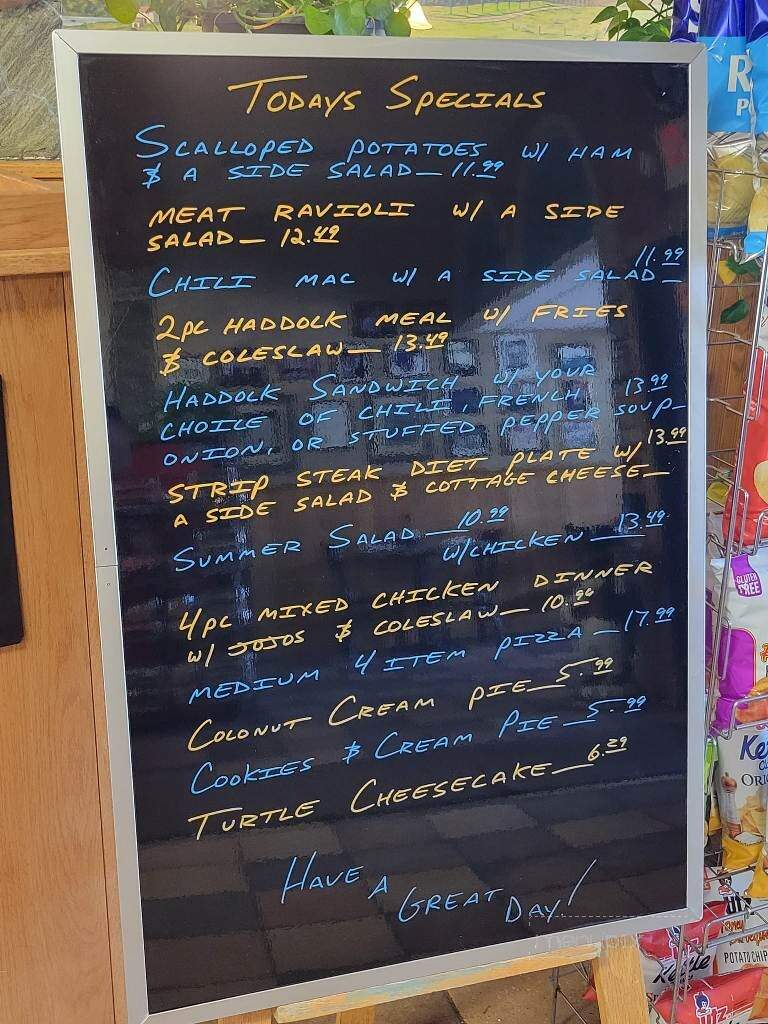 TODAYS SPECIALS
SCALLOPED POTATOES W/ HAM
& A SIDE SALAD— 11.99
MEAT RAVIOLI W/ A SIDE
SALAD— 12.49
CHILI MAC W/ A SIDE SALAD— 11.99
2PC HADDOCK MEAL W/ FRIES
& COLESLAW— 13.49
HADDOCK SANDWICH W/ YOUR
CHOICE OF CHILI, FRENCH
ONION, OR STUFFED PEPPER SOUP— 13.99
STRIP STEAK DIET PLATE W/
A SIDE SALAD & COTTAGE CHEESE— 13.99
SUMMER SALAD— 10.99
W/CHICKEN— 13.49
4PC MIXED CHICKEN DINNER
W/ JOJOS & COLESLAW— 10.99
MEDIUM 4 ITEM PIZZA— 17.99
COCONUT CREAM PIE— 5.99
COOKIES & CREAM PIE— 5.99
TURTLE CHEESECAKE— 6.29
HAVE A GREAT DAY!
GLUTEN
FREE
Kettle
POTATO CHIP
Utz